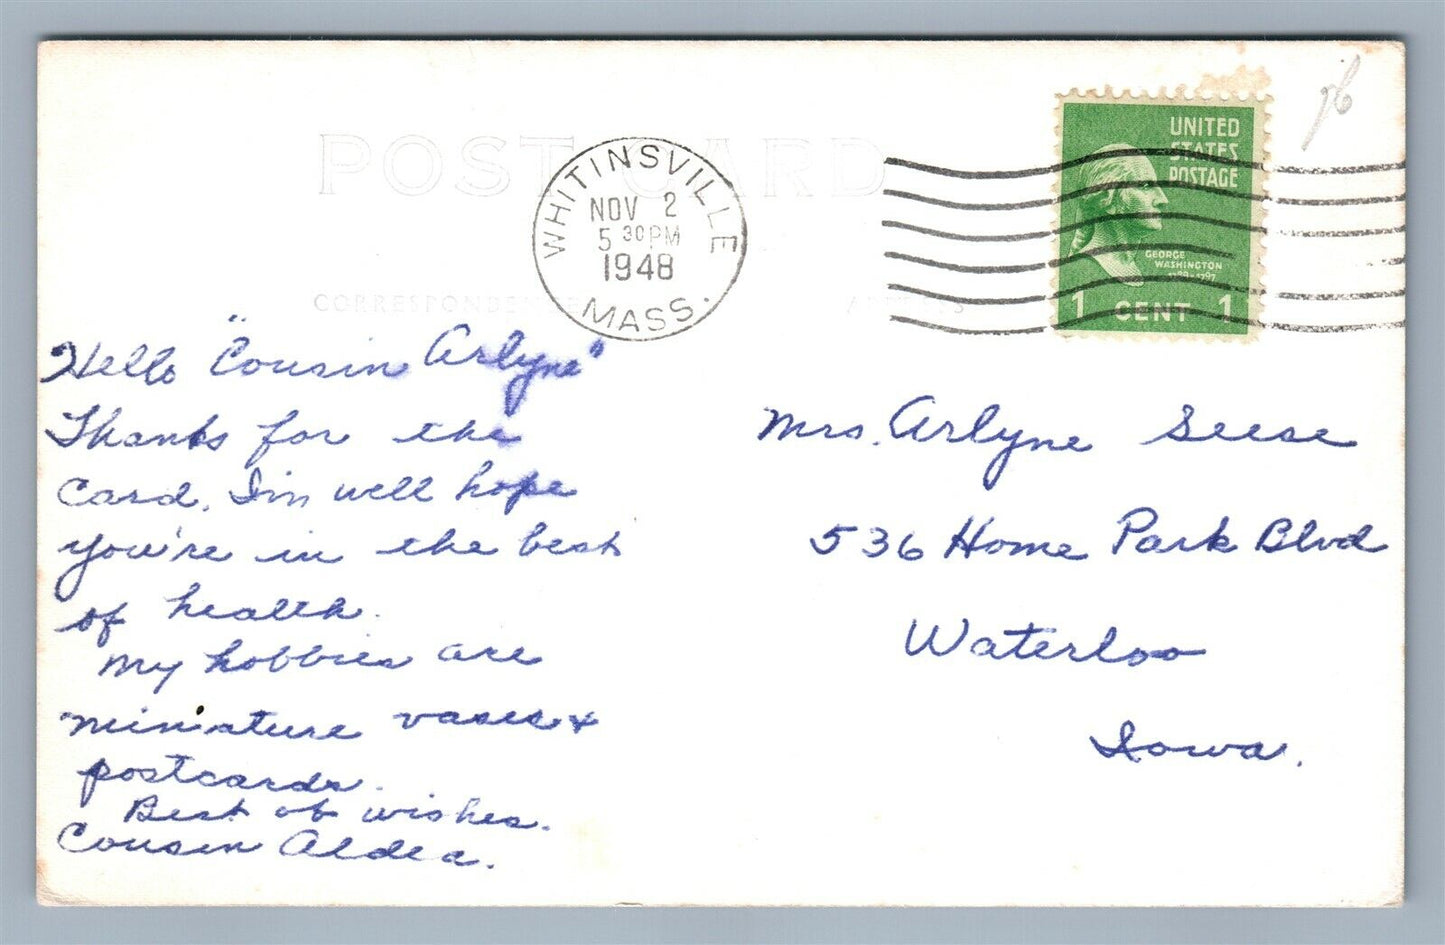 POST CARD
WHITINSVILLE
NOV 2
5 30 PM
1948
MASS.
UNITED
STATES
POSTAGE
GEORGE
WASHINGTON
1789-1797
1 CENT 1
CORRESPONDENCE
ADDRESS
Hello "Cousin Arlyne"
Thanks for the
Card. I'm well hope
you're in the best
of health.
My hobbies are
miniature vases &
postcards.
Best of wishes.
Cousin Aldea.
Mrs. Arlyne Seese
536 Home Park Blvd
Waterloo
Iowa.